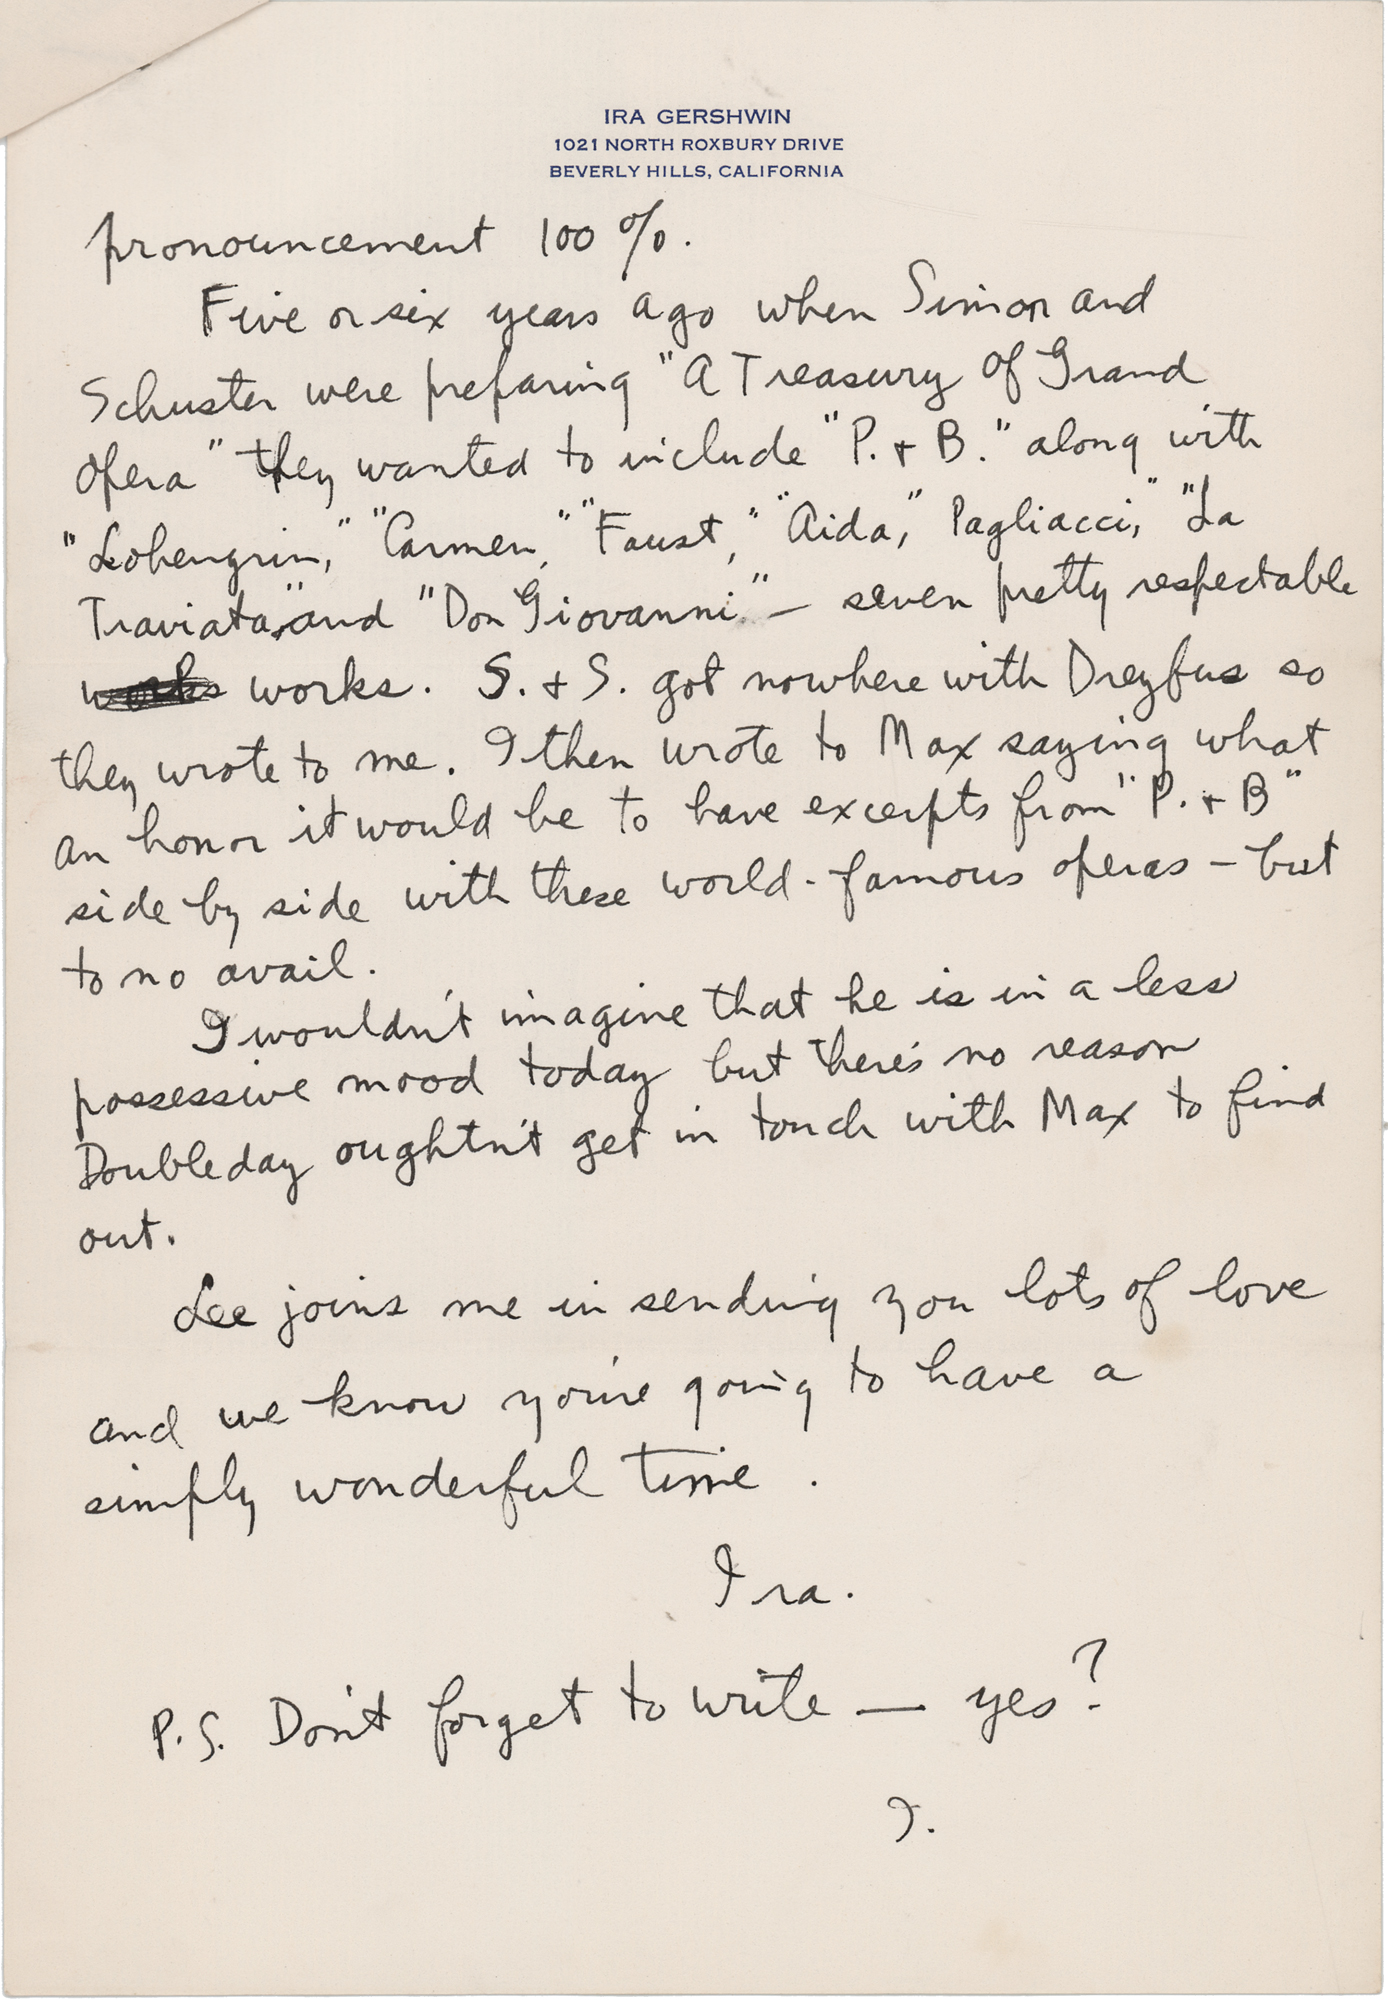 IRA GERSHWIN
1021 NORTH ROXBURY DRIVE
BEVERLY HILLS, CALIFORNIA
pronouncement 100 %.
Five or six years ago when Simon and
Schuster were preparing "A Treasury Of Grand
Opera" they wanted to include "P. + B." along with
"Lohengrin," "Carmen," "Faust," "Aida," Pagliacci," "La
Traviata," and "Don Giovanni" — seven pretty respectable
works works. S. + S. got nowhere with Dreyfus so
they wrote to me. I then wrote to Max saying what
an honor it would be to have excerpts from "P. + B"
side by side with these world-famous operas — but
to no avail.
I wouldn't imagine that he is in a less
possessive mood today but there's no reason
Doubleday oughtn't get in touch with Max to find
out.
Lee joins me in sending you lots of love
and we know you're going to have a
simply wonderful time.
Ira.
P.S. Don't forget to write — yes?
I.